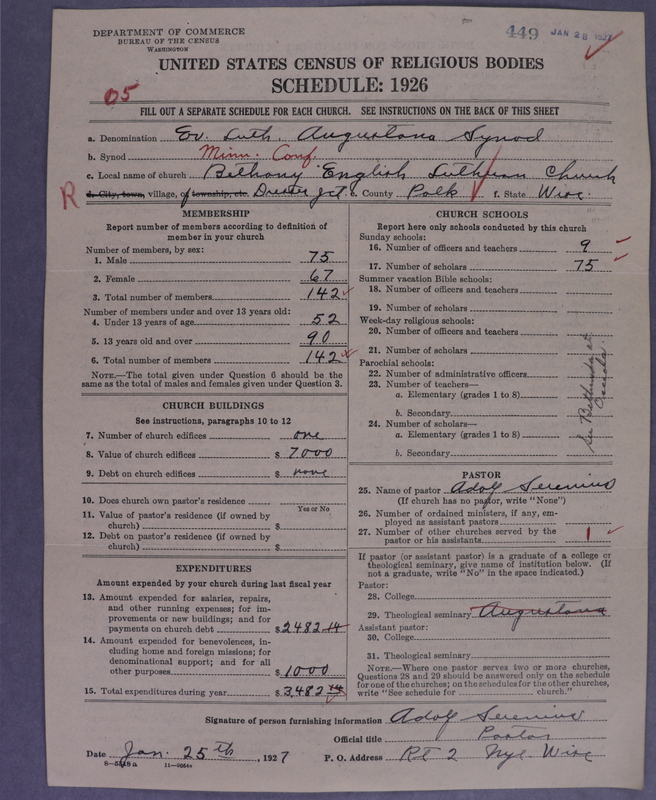 DEPARTMENT OF COMMERCE
BUREAU OF THE CENSUS
WASHINGTON
449 JAN 28 1927
UNITED STATES CENSUS OF RELIGIOUS BODIES
SCHEDULE: 1926
05
FILL OUT A SEPARATE SCHEDULE FOR EACH CHURCH. SEE INSTRUCTIONS ON THE BACK OF THIS SHEET
a. Denomination Ev. Luth. Augustana Synod
b. Synod Minn. Conf.
c. Local name of church Bethany English Lutheran Church
R d. City, town, village, or township, etc. Dresser Jct. e. County Polk f. State Wisc.
MEMBERSHIP
Report number of members according to definition of
member in your church
Number of members, by sex:
1. Male 75
2. Female 67
3. Total number of members 142
Number of members under and over 13 years old:
4. Under 13 years of age 52
5. 13 years old and over 90
6. Total number of members 142
NOTE.—The total given under Question 6 should be the
same as the total of males and females given under Question 3.
CHURCH BUILDINGS
See instructions, paragraphs 10 to 12
7. Number of church edifices one
8. Value of church edifices $ 7000
9. Debt on church edifices $ none
10. Does church own pastor's residence
Yes or No
11. Value of pastor's residence (if owned by
church) $
12. Debt on pastor's residence (if owned by
church) $
EXPENDITURES
Amount expended by your church during last fiscal year
13. Amount expended for salaries, repairs,
and other running expenses; for im-
provements or new buildings; and for
payments on church debt $ 2482.14
14. Amount expended for benevolences, in-
cluding home and foreign missions; for
denominational support; and for all
other purposes $ 1000
15. Total expenditures during year $ 3,482.14
CHURCH SCHOOLS
Report here only schools conducted by this church
Sunday schools:
16. Number of officers and teachers 9
17. Number of scholars 75
Summer vacation Bible schools:
18. Number of officers and teachers
19. Number of scholars
Week-day religious schools:
20. Number of officers and teachers
21. Number of scholars
Parochial schools:
22. Number of administrative officers
23. Number of teachers—
a. Elementary (grades 1 to 8)
b. Secondary
24. Number of scholars—
a. Elementary (grades 1 to 8)
b. Secondary
See Bethesda at
PASTOR
25. Name of pastor Adolf Serenius
(If church has no pastor, write "None")
26. Number of ordained ministers, if any, em-
ployed as assistant pastors
27. Number of other churches served by the
pastor or his assistants 1
If pastor (or assistant pastor) is a graduate of a college or
theological seminary, give name of institution below. (If
not a graduate, write "No" in the space indicated.)
Pastor:
28. College
29. Theological seminary Augustana
Assistant pastor:
30. College
31. Theological seminary
NOTE.—Where one pastor serves two or more churches,
Questions 28 and 29 should be answered only on the schedule
for one of the churches; on the schedules for the other churches,
write "See schedule for church."
Signature of person furnishing information Adolf Serenius
Official title Pastor
Date Jan. 25th, 1927 P. O. Address Rt 2 Nye Wisc
8—5518 a 11—9054a